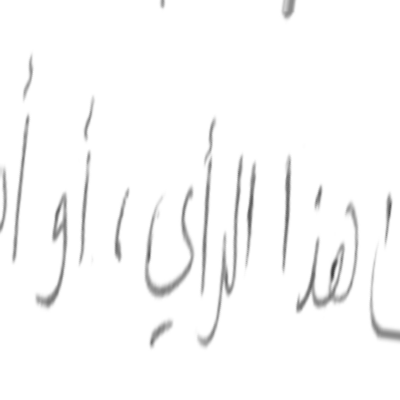 هذا الرأي، أو